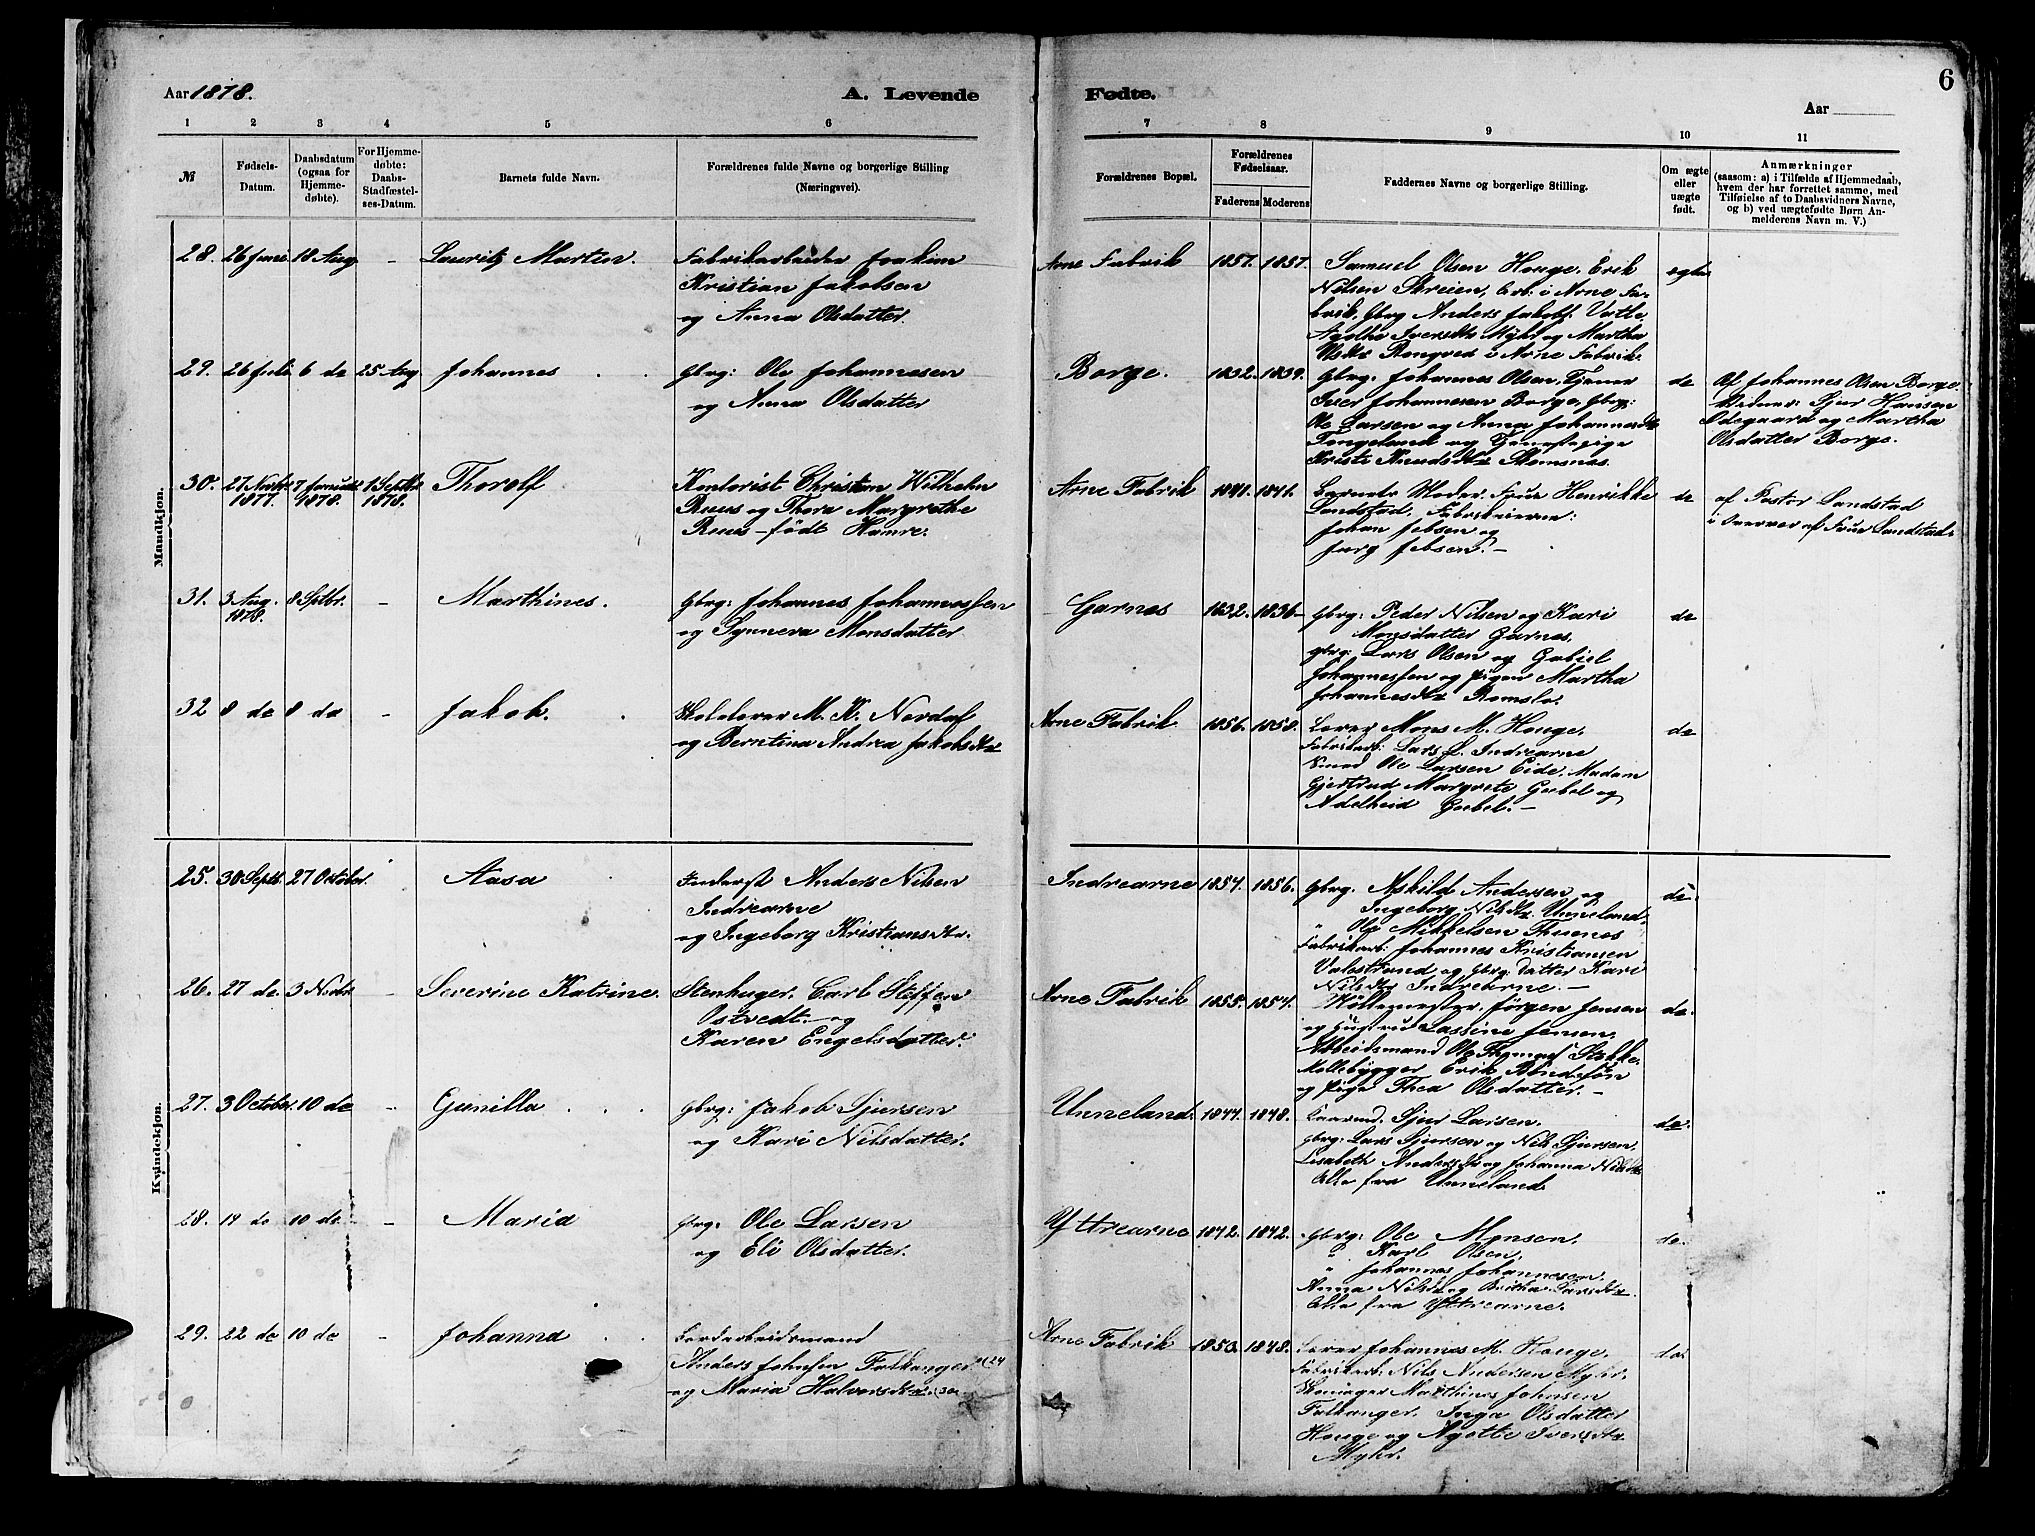 6
Aar 1878.
A. Levende
Fødte.
Aar
1 2 3 4 5 6
7 8 9 10 11
№
Fødsels-
Datum.
Daabsdatum
(ogsaa for
Hjemme-
døbte).
For Hjemme-
døbte:
Daabs-
Stadfæstel-
ses-Datum.
Barnets fulde Navn.
Forældrenes fulde Navne og borgerlige Stilling
(Næringsvei).
Forældrenes Bopæl.
Forældrenes
Fødselsaar.
Faderens Moderens
Faddernes Navne og borgerlige Stilling.
Om ægte
eller
uægte
født.
Anmærkninger
(saasom: a) i Tilfælde af Hjemmedaab,
hvem der har forrettet samme, med
Tilføielse af to Daabsvidners Navne,
og b) ved uægtefødte Børn An-
melderens Navn m. V.)
Mandkjøn.
28. 26 Juni 18 Aug - Lauritz Martin.
Fabrikarbeider Joakim
Kristian Jakobsen
og Anna Olsdatter.
Arne Fabrik 1857. 1857.
Samuel Olsen Houge. Erik
Nilsen Skreien, Arb: i Arne Fa-
brik, Gbrg Anders Jakobs. Vatle,
Agathe Iversdtr Myhr og Martha
Rongved i Arne Fabrik.
ægte
29. 26 Juli 6 do 25 Aug Johannes
Gbrg: Ole Johannesen
og Anna Olsdatter
Borge. 1832. 1839.
Gbrg: Johannes Olsen, Tjener
Iver Johannesen Borge, Gbrg:
Ole Larsen og Anna Johannesdtr
Tengeland og Tjenestepige
Kristi Knudsdtr Stomsnæs.
do
Af Johannes Olsen Borge.
Vidner: Sjur Hansen
Ødegaard og Martha
Olsdatter Borge.
30. 27 Novbr 1877. 7 Januar 1878. 1 Septbr 1878. Thorolf
Kontorist Christian Wilhelm
Ruus og Thora Margrethe
Ruus - født Hamre.
Arne Fabrik 1841. 1841.
Barnets Moder. Frue Henrikke
Landstad, Fabrikeierne:
Johan Jebsen og
Jurg Jebsen. -
do
af Pastor Landstad
i Nærvær af Frue Landstad.
31. 3 Aug. 1878. 8 Sptbr. - Marthines.
Gbrg: Johannes Johannessen
og Synneva Monsdatter
Garnes 1832. 1836
Gbrg: Peder Nilsen og Kari
Monsdatter Garnes,
gbrg: Lars Olsen og Gabiel
Johannessen og Pigen Martha
Johannesdtr Romslo.
do
32 8 do 8 do - Jakob.
Skolelærer M. K. Nordaf
og Berntina Andrea Jakobsdtr
Arne Fabrik 1856. 1858.
Lærer Mons M. Houge.
Fabrikarb: Lars L. Indrearne
Smed Ole Larsen Eide. Madam
Gjertrud Margrete Goebel og
Adelheid Goebel. -
do
Kvindekjøn.
25. 30 Septb. 27 October. Aasa
Inderst Anders Nilsen
Indrearne
og Ingeborg Kristiansdtr.
Indrearne 1854. 1856.
Gbrg. Askild Andersen og
Ingeborg Nilsdtr Unneland.
" Ole Mikkelsen Thunes
Fabrikarb: Johannes Kristiansen
Valestrand og Gbrg: Datter Kari
Nilsdtr Indrearne. -
do.
26. 27 do 3 Novbr - Severine Katrine.
Stenhuger. Carl Steffen
Ostvedt. - og
Karen Engelsdatter.
Arne Fabrik 1855. 1854.
Møllemester. Jørgen Jensen
og Hustrud Lassine Jensen.
Arbeidsmand Ole Thomas. Stokke.
Møllebygger Erik Bendesøn
og Pige Thea Olsdatter. -
do.
27. 3 October. 10 do - Gunilla
Gbrg: Jakob Sjursen
og Kari Nilsdatter.
Unneland. 1844. 1848.
Kaarmd. Sjur Larsen.
gbrg: Lars Sjursen og Nils Sjursen,
Lisabeth Andersdtr og Johanna Nilsdtr
Alle fra Unneland.
do.
28. 14 do 10 do - Maria
Gbrg: Ole Larsen
og Eli Olsdatter.
Yttrearne 1842. 1842.
Gbrg: Ole Monsen.
" Karl Olsen.
" Johannes Johannesen.
Anna Nilsdtr og Britha Larsdtr.
Alle fra Yttrearne.
do.
29. 22 do 10 do - Johanna
Jordarbeidsmand
Anders Johnsen Falkanger
og Maria Halvorsdtr.
Arne Fabrik 1850. 1848.
Lærer Johannes M. Houge.
Fabrikarb: Nils Andersen Myhr.
Skomager Marthines Johnsen
Falkanger. Inga Olsdatter
Houge og Agotte Iversdtr
Myhr.
do.